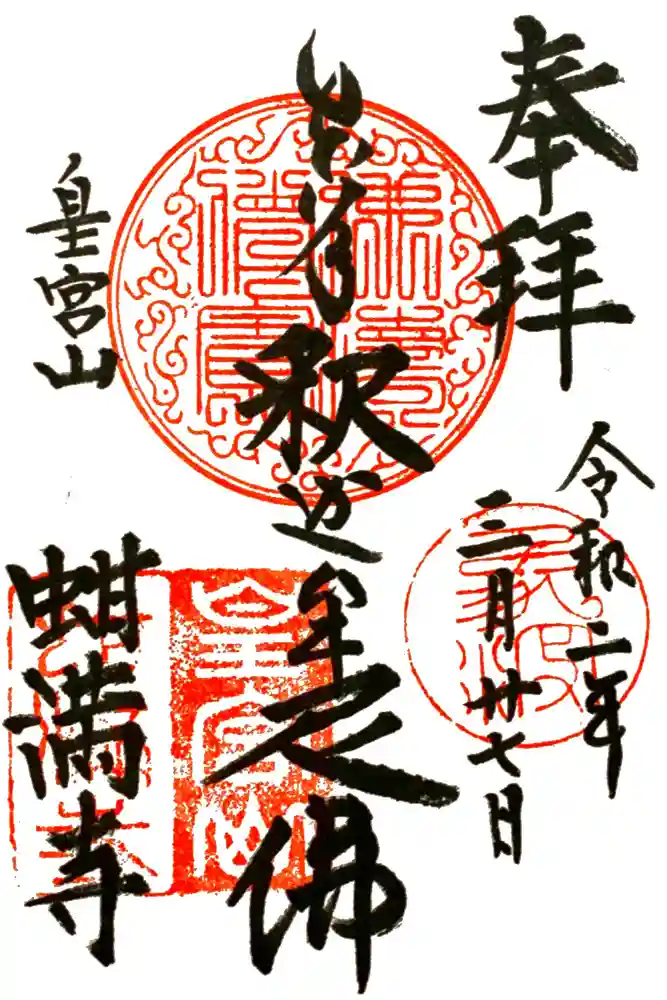 奉拝
令和二年
三月廿七日
釈迦牟尼佛
皇宮山
蚶満寺
佛法僧寶
皇宮山